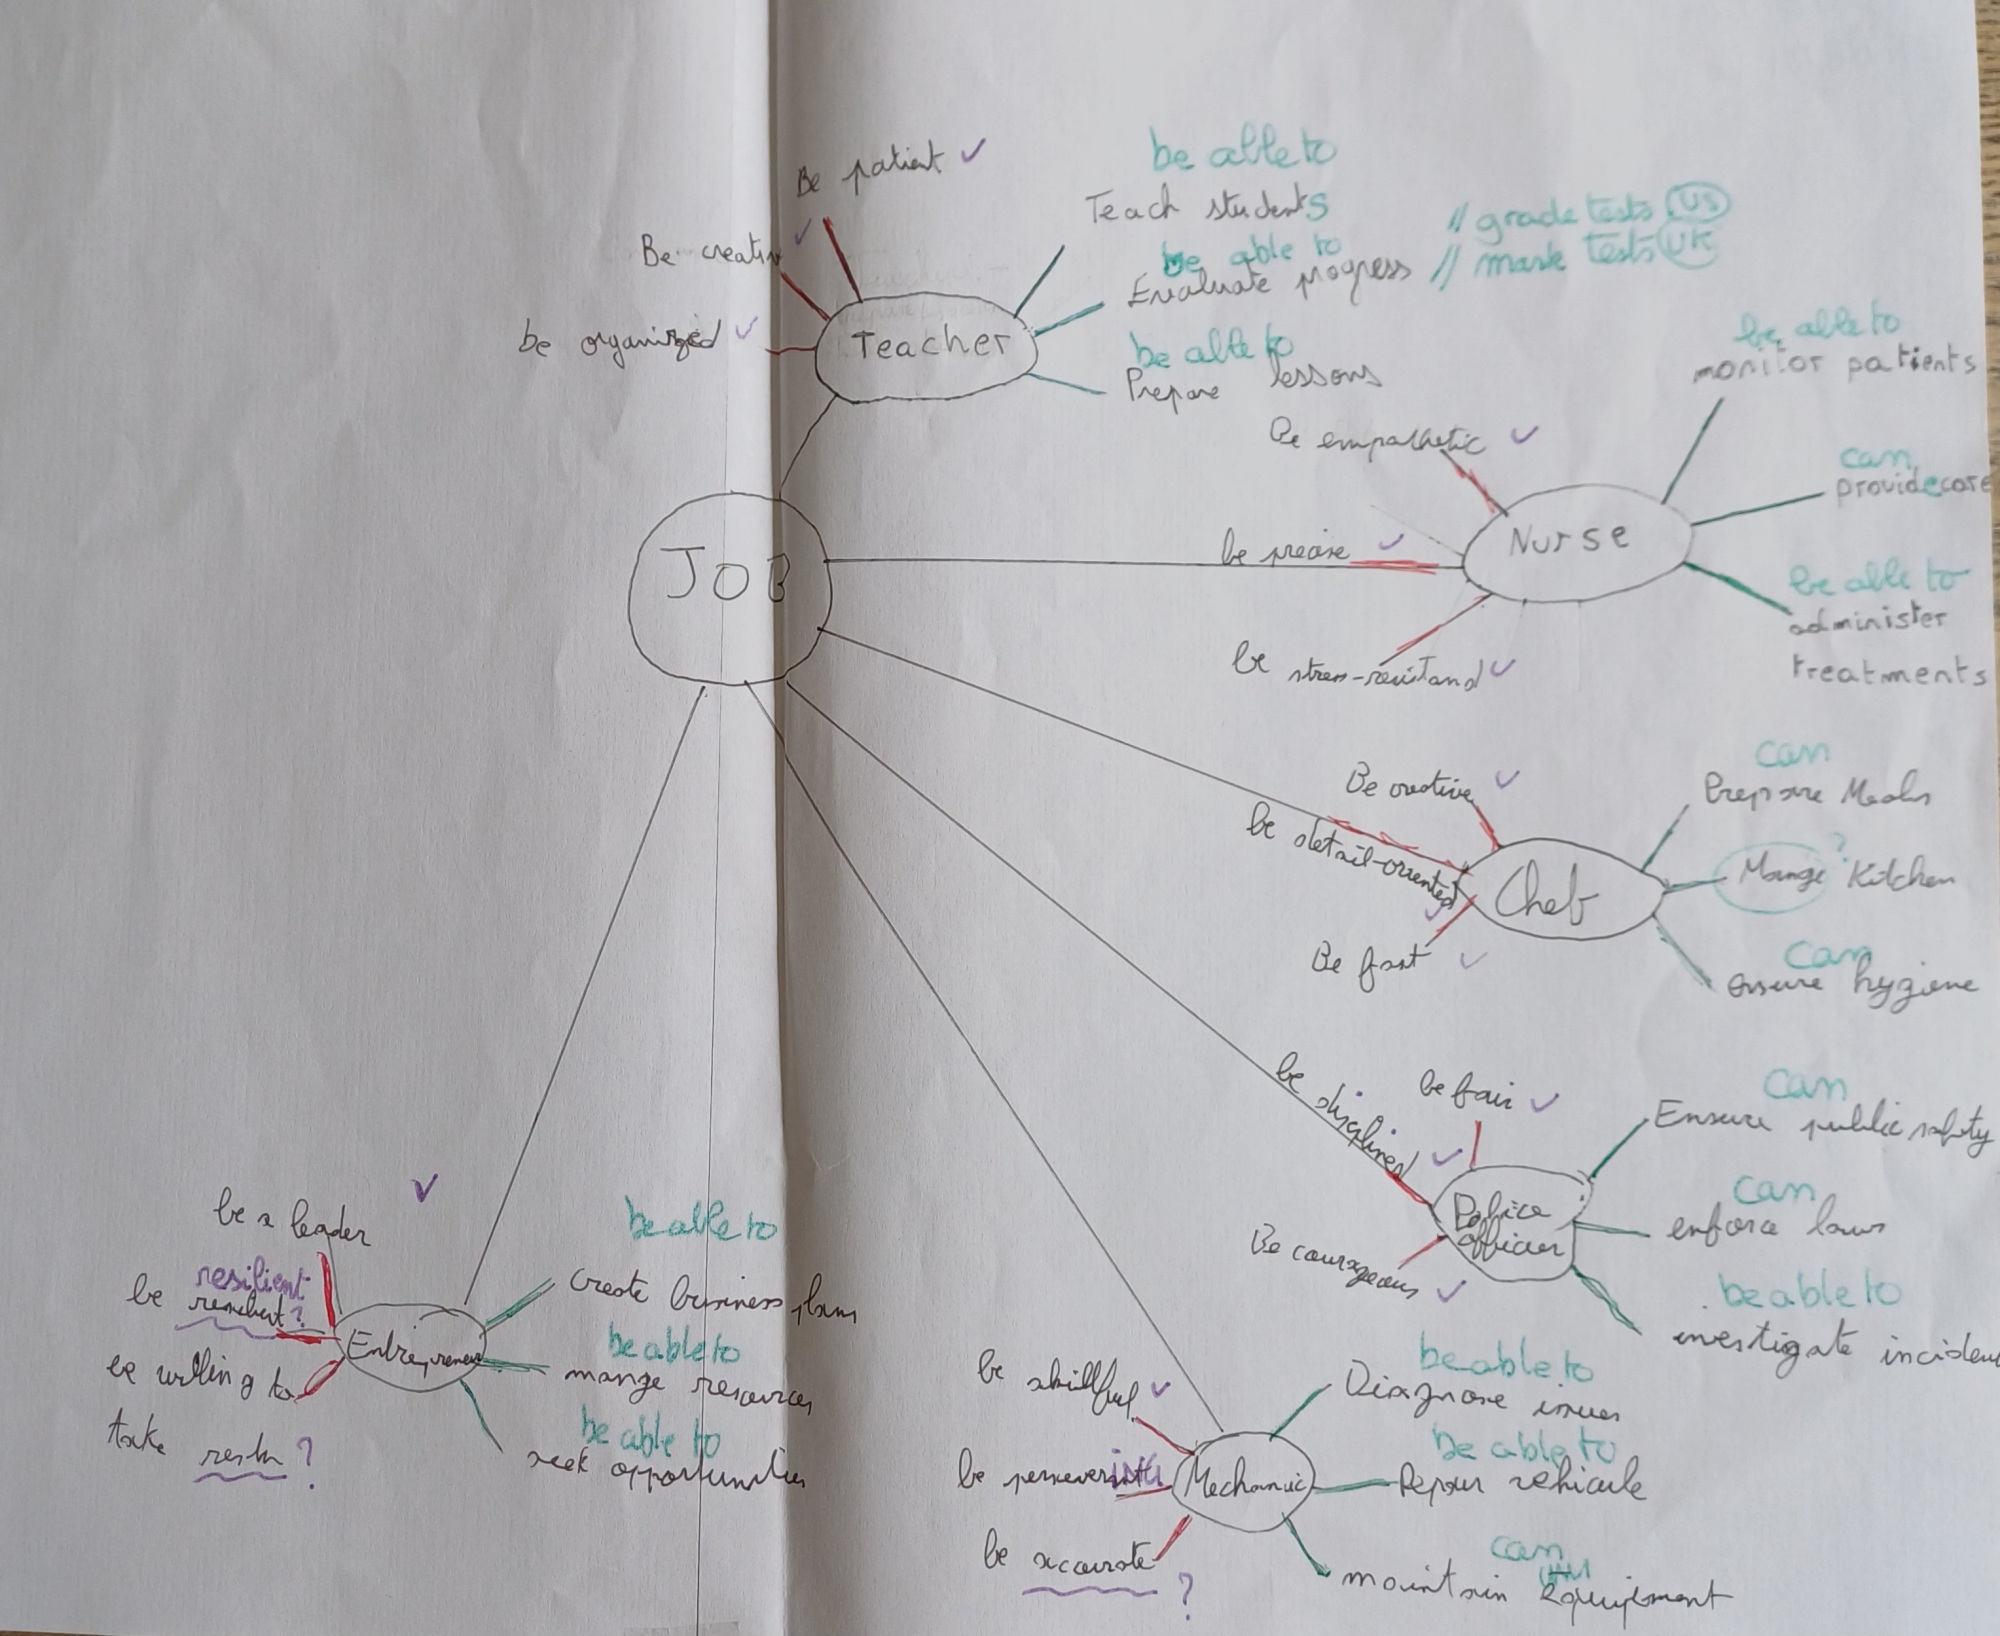 JOB
Be patient ✓
Be creative ✓
be organized ✓
Teacher
be able to
Teach students
be able to
Evaluate progress // grade tests US
// mark tests UK
be able to
Prepare lessons
Be empathetic ✓
be precise ✓
be stress-resistand ✓
Nurse
be able to
monitor patients
can
provide care
be able to
administer
treatments
Be creative ✓
be detail-oriented ✓
Be fast ✓
Chef
can
Prepare Meals
Mange ? Kitchen
can
ensure hygiene
be fair ✓
be disciplined ✓
Be courageous ✓
Police
officier
can
Ensure public safety
can
enforce laws
be able to
investigate
be skillful ✓
be perseverant
be accurate ?
Mechanic
be able to
Diagnose issues
be able to
Repair vehicule
can
maintain Equipment
be a leader ✓
resilient
be ?
be willing to
take ?
Entrepreneur
be able to
create business plans
be able to
mange resources
be able to
seek opportunities